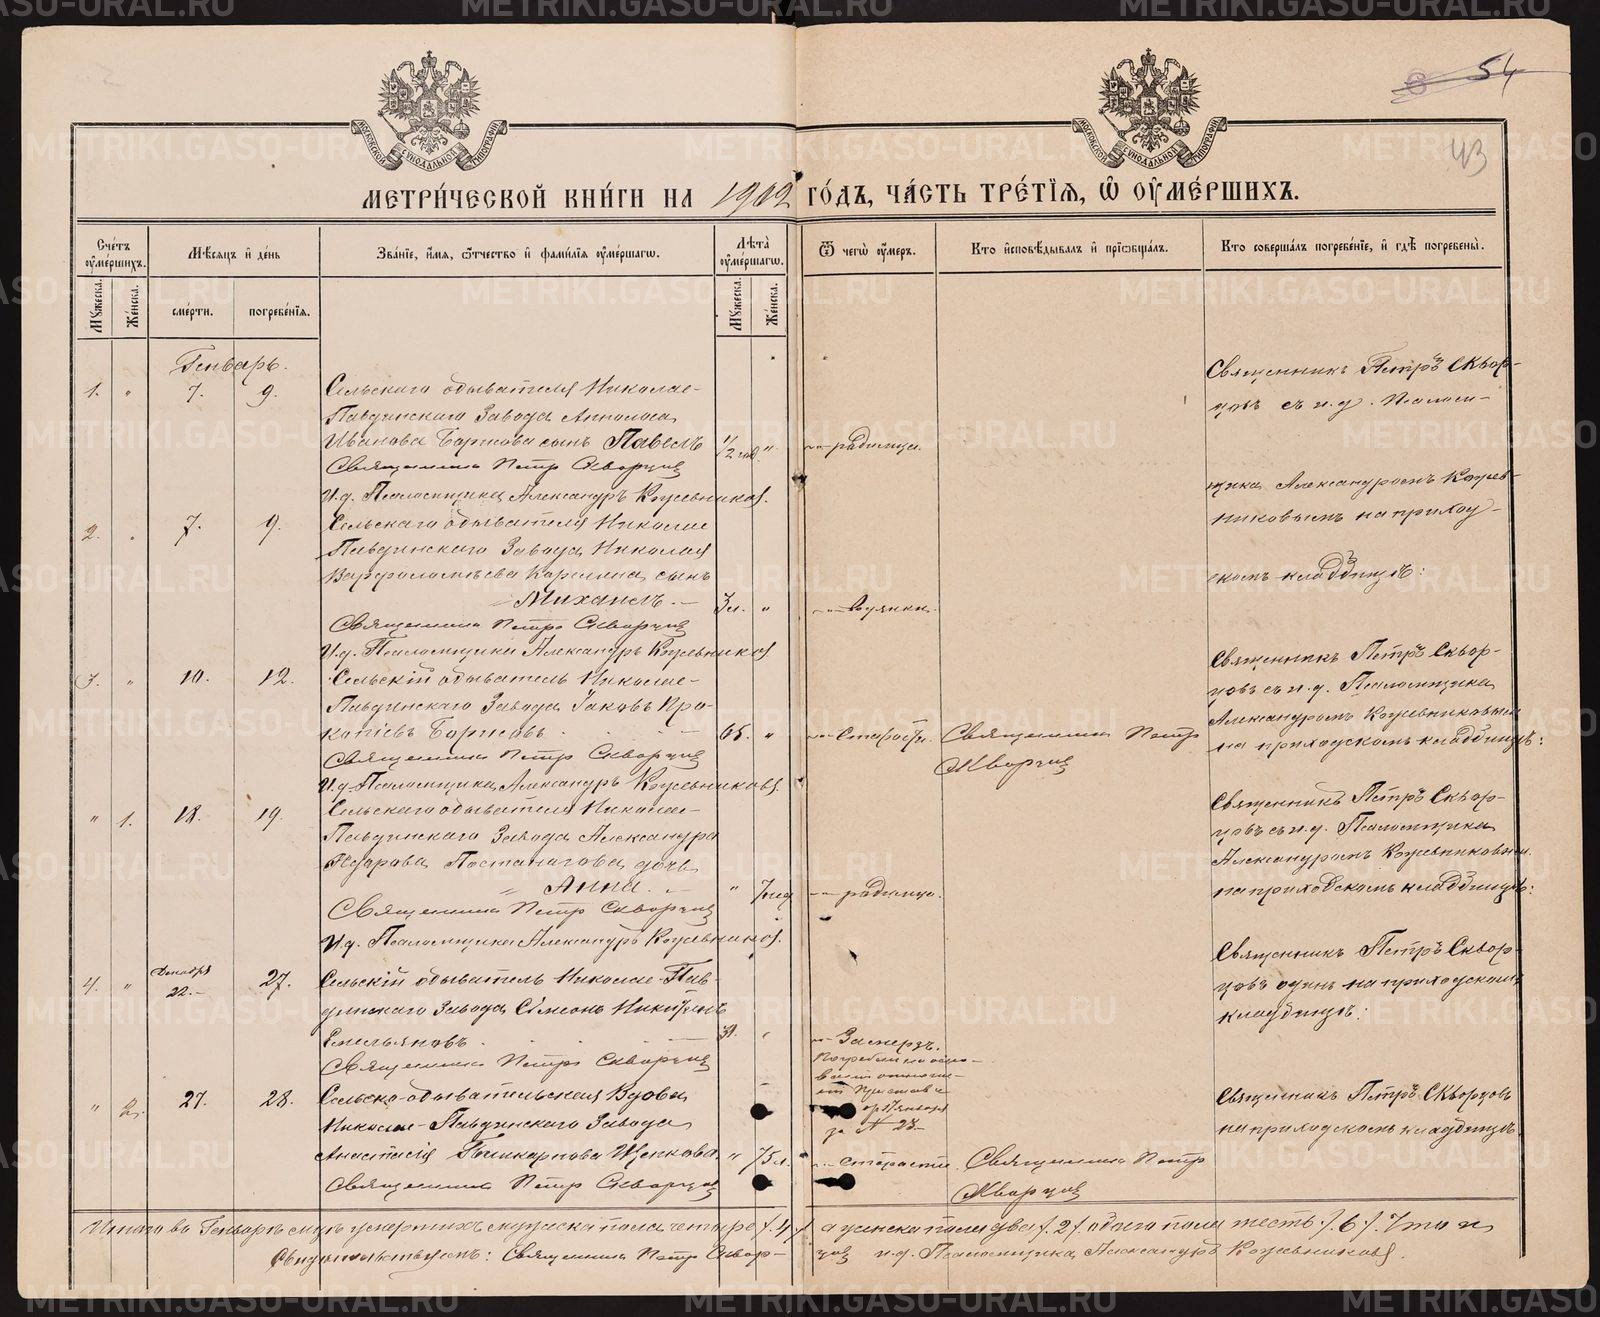 54
43
МЕТРИ́ЧЕСКОЙ КНИ́ГИ НА 1902 ГО́ДЪ, ЧА́СТЬ ТРЕ́ТІЯ, Ѡ ОУМЕ́РШИХЪ.
Сче́тъ оумершихъ.
Мужеска.
Же́нска.
Мѣсяцъ и де́нь
сме́рти.
погребе́нія.
Зва́ніе, и́мя, ѻтчество и фами́лія оуме́ршагѡ.
Лѣта̀ оуме́ршагѡ.
Мужеска.
Же́нска.
Ѿ чегѡ̀ оумеръ.
Кто исповѣдывалъ и пріѡбща́лъ.
Кто соверша́лъ погребе́ніе, и гдѣ погребены̀.
Генварь.
1. " 7. 9.
Сельскаго обывателя Николае-
Павдинскаго Завода
Иванова сынъ Павелъ 1/2 год. "
Священникъ Петръ Скворцов
И.д. Псаломщика Александръ Кожевников.
Священникъ Петръ Сквор-
цовъ съ и.д. Псалом-
щика Александромъ Кожев-
никовымъ на приход-
скомъ кладбищѣ:
2. " 7. 9.
Сельскаго обывателя Николае
Павдинскаго Завода Николая
Варфоломѣева сынъ
Михаилъ. 3 л. "
Священникъ Петръ Скворцов
И.д. Псаломщика Александръ Кожевников
3. " 10. 12.
Сельскій обыватель Николае-
Павдинскаго Завода Іаковъ Про-
копіевъ 65. " Старости. Священникъ Петръ
Скворцов
Священникъ Петръ Скворцов
И.д. Псаломщика Александръ Кожевниковъ
Священникъ Петръ Сквор-
цовъ съ и.д. Псаломщика
Александромъ Кожевниковым
на приходскомъ кладбищѣ:
" 1. 18. 19.
Сельскаго обывателя Николае-
Павдинскаго Завода Александра
дочь
Анна. "
Священникъ Петръ Скворцов
И.д. Псаломщика Александръ Кожевников.
Священникъ Петръ Сквор-
цовъ съ и.д. Псаломщика
Александромъ Кожевниковым.
на приходскомъ кладбищѣ:
4. " Декабря 22. 27.
Сельскій обыватель Николае-Пав-
динскаго Завода Сѵмеонъ Никитинъ
Емельяновъ.
Священникъ Петръ Скворцов
Замерзъ.
за № 28
Священникъ Петръ Сквор-
цовъ одинъ на приходскомъ
кладбищѣ:
" 2. 27. 28.
Сельско-обывательская Вдова
Николае-Павдинскаго Завода
Анастасія Поликарпова Щепкова. " 75 л. старости. Священникъ Петръ
Скворцов
Священникъ Петръ Скворцов
Священникъ Петръ Скворцовъ
на приходскомъ кладбищѣ.
Итого въ Генварѣ умершихъ мужска пола четыре /.4./ а женска пола два /.2./ обоего пола шесть /.6./. Что и
свидѣтельствуемъ: Священникъ Петръ Сквор-
цов и.д. Псаломщика Александръ Кожевниковъ.
METRIKI.GASO-URAL.RU